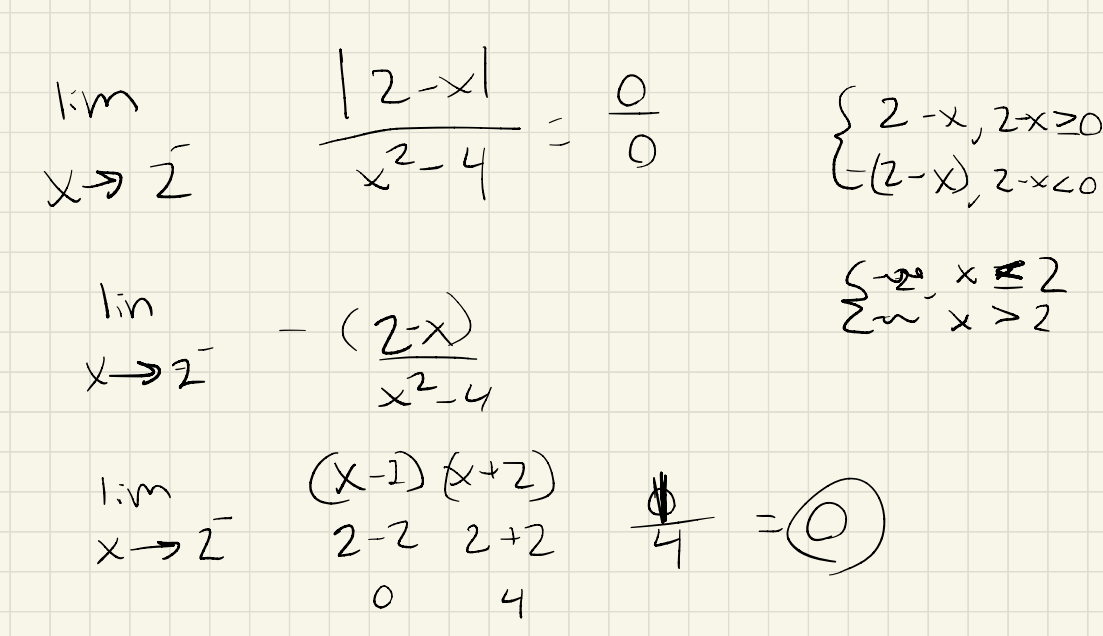 lim x→2⁻ |2-x| / x²-4 = 0/0
{ 2-x, 2-x≥0
-(2-x), 2-x<0
{ x ≤ 2
x > 2
lin x→2⁻ - (2-x) / x²-4
lim x→2⁻ (x-2) (x+2)
2-2 2+2
0 4
/ 4 = 0